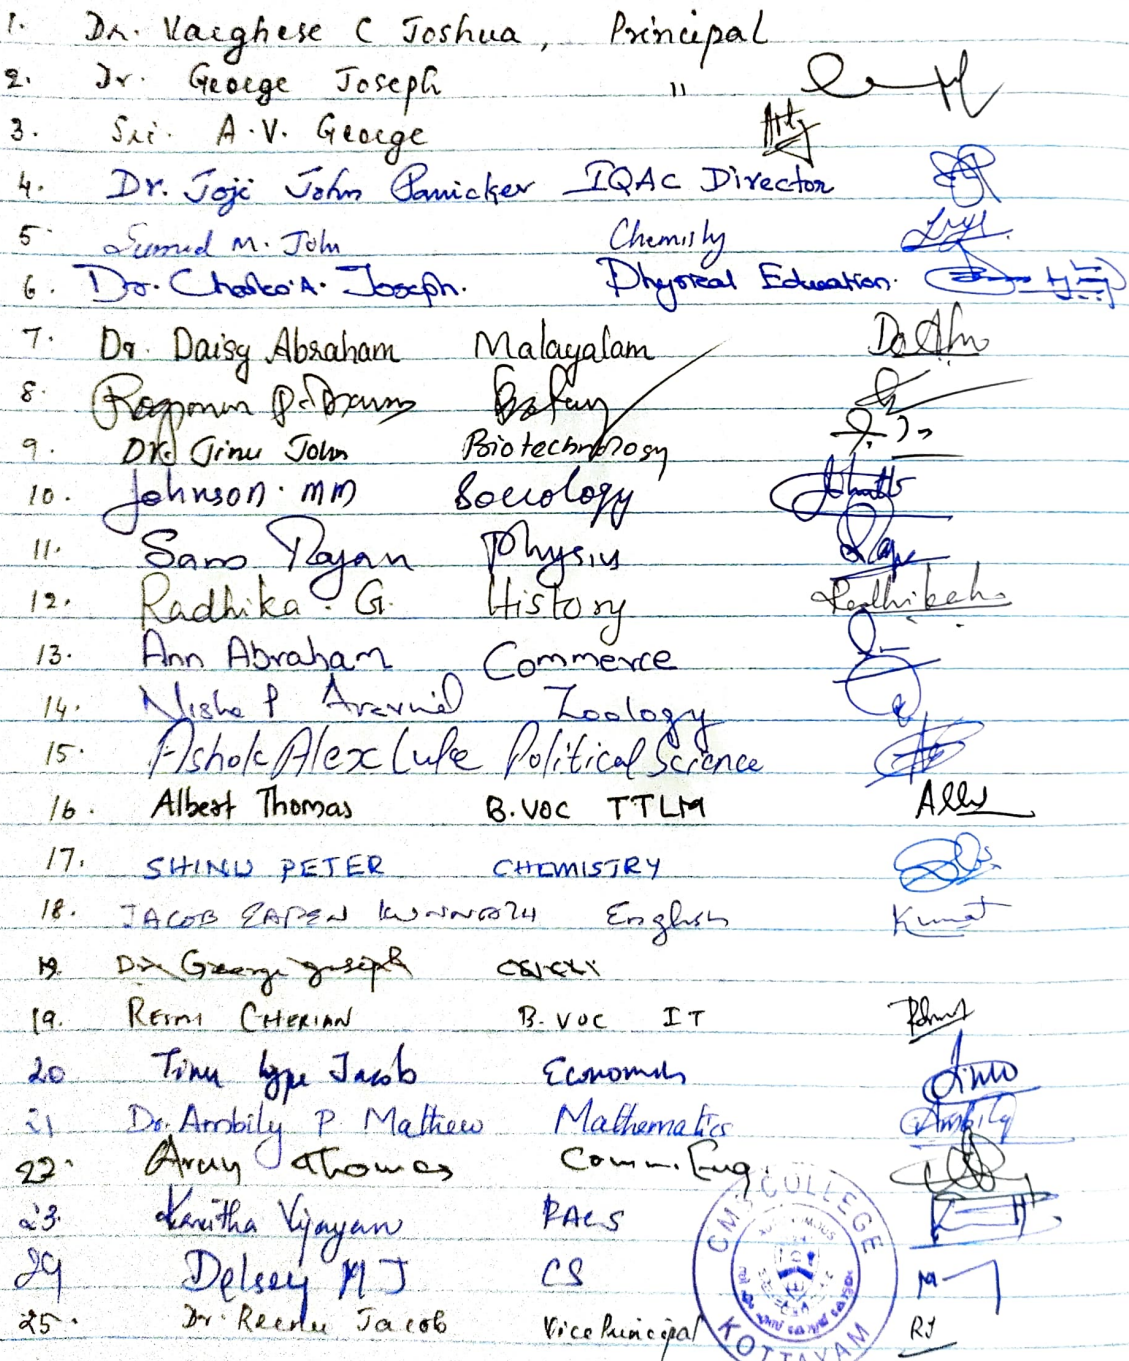 1. Dr. Varghese C Joshua, Principal
2. Dr. George Joseph "
3. Sri. A.V. George
4. Dr. Joji John Panicker IQAC Director
5. M. John Chemistry
6. Dr. Chacko A. Joseph. Physical Education.
7. Dr. Daisy Abraham Malayalam
8. Botany
9. Dr. Jinu John Biotechnology
10. Johnson. MM Sociology
11. Sam Rajan Physics
12. Radhika. G. History
13. Ann Abraham Commerce
14. Nisha P Aravind Zoology
15. Ashok Alex Luke Political Science
16. Albert Thomas B.VOC TTLM
17. SHINU PETER CHEMISTRY
18. JACOB EAPEN KUNNATH English
19. Dr George Joseph
19. RESMI CHERIAN B.VOC IT
20 Tinu Jacob Economics
21 Dr. Ambily P. Mathew Mathematics
22. Thomas Comm. Eng.
23. Kavitha Vijayan
24 Delsey M J CS
25. Dr. Reenu Jacob Vice Principal RJ
CMS COLLEGE
KOTTAYAM